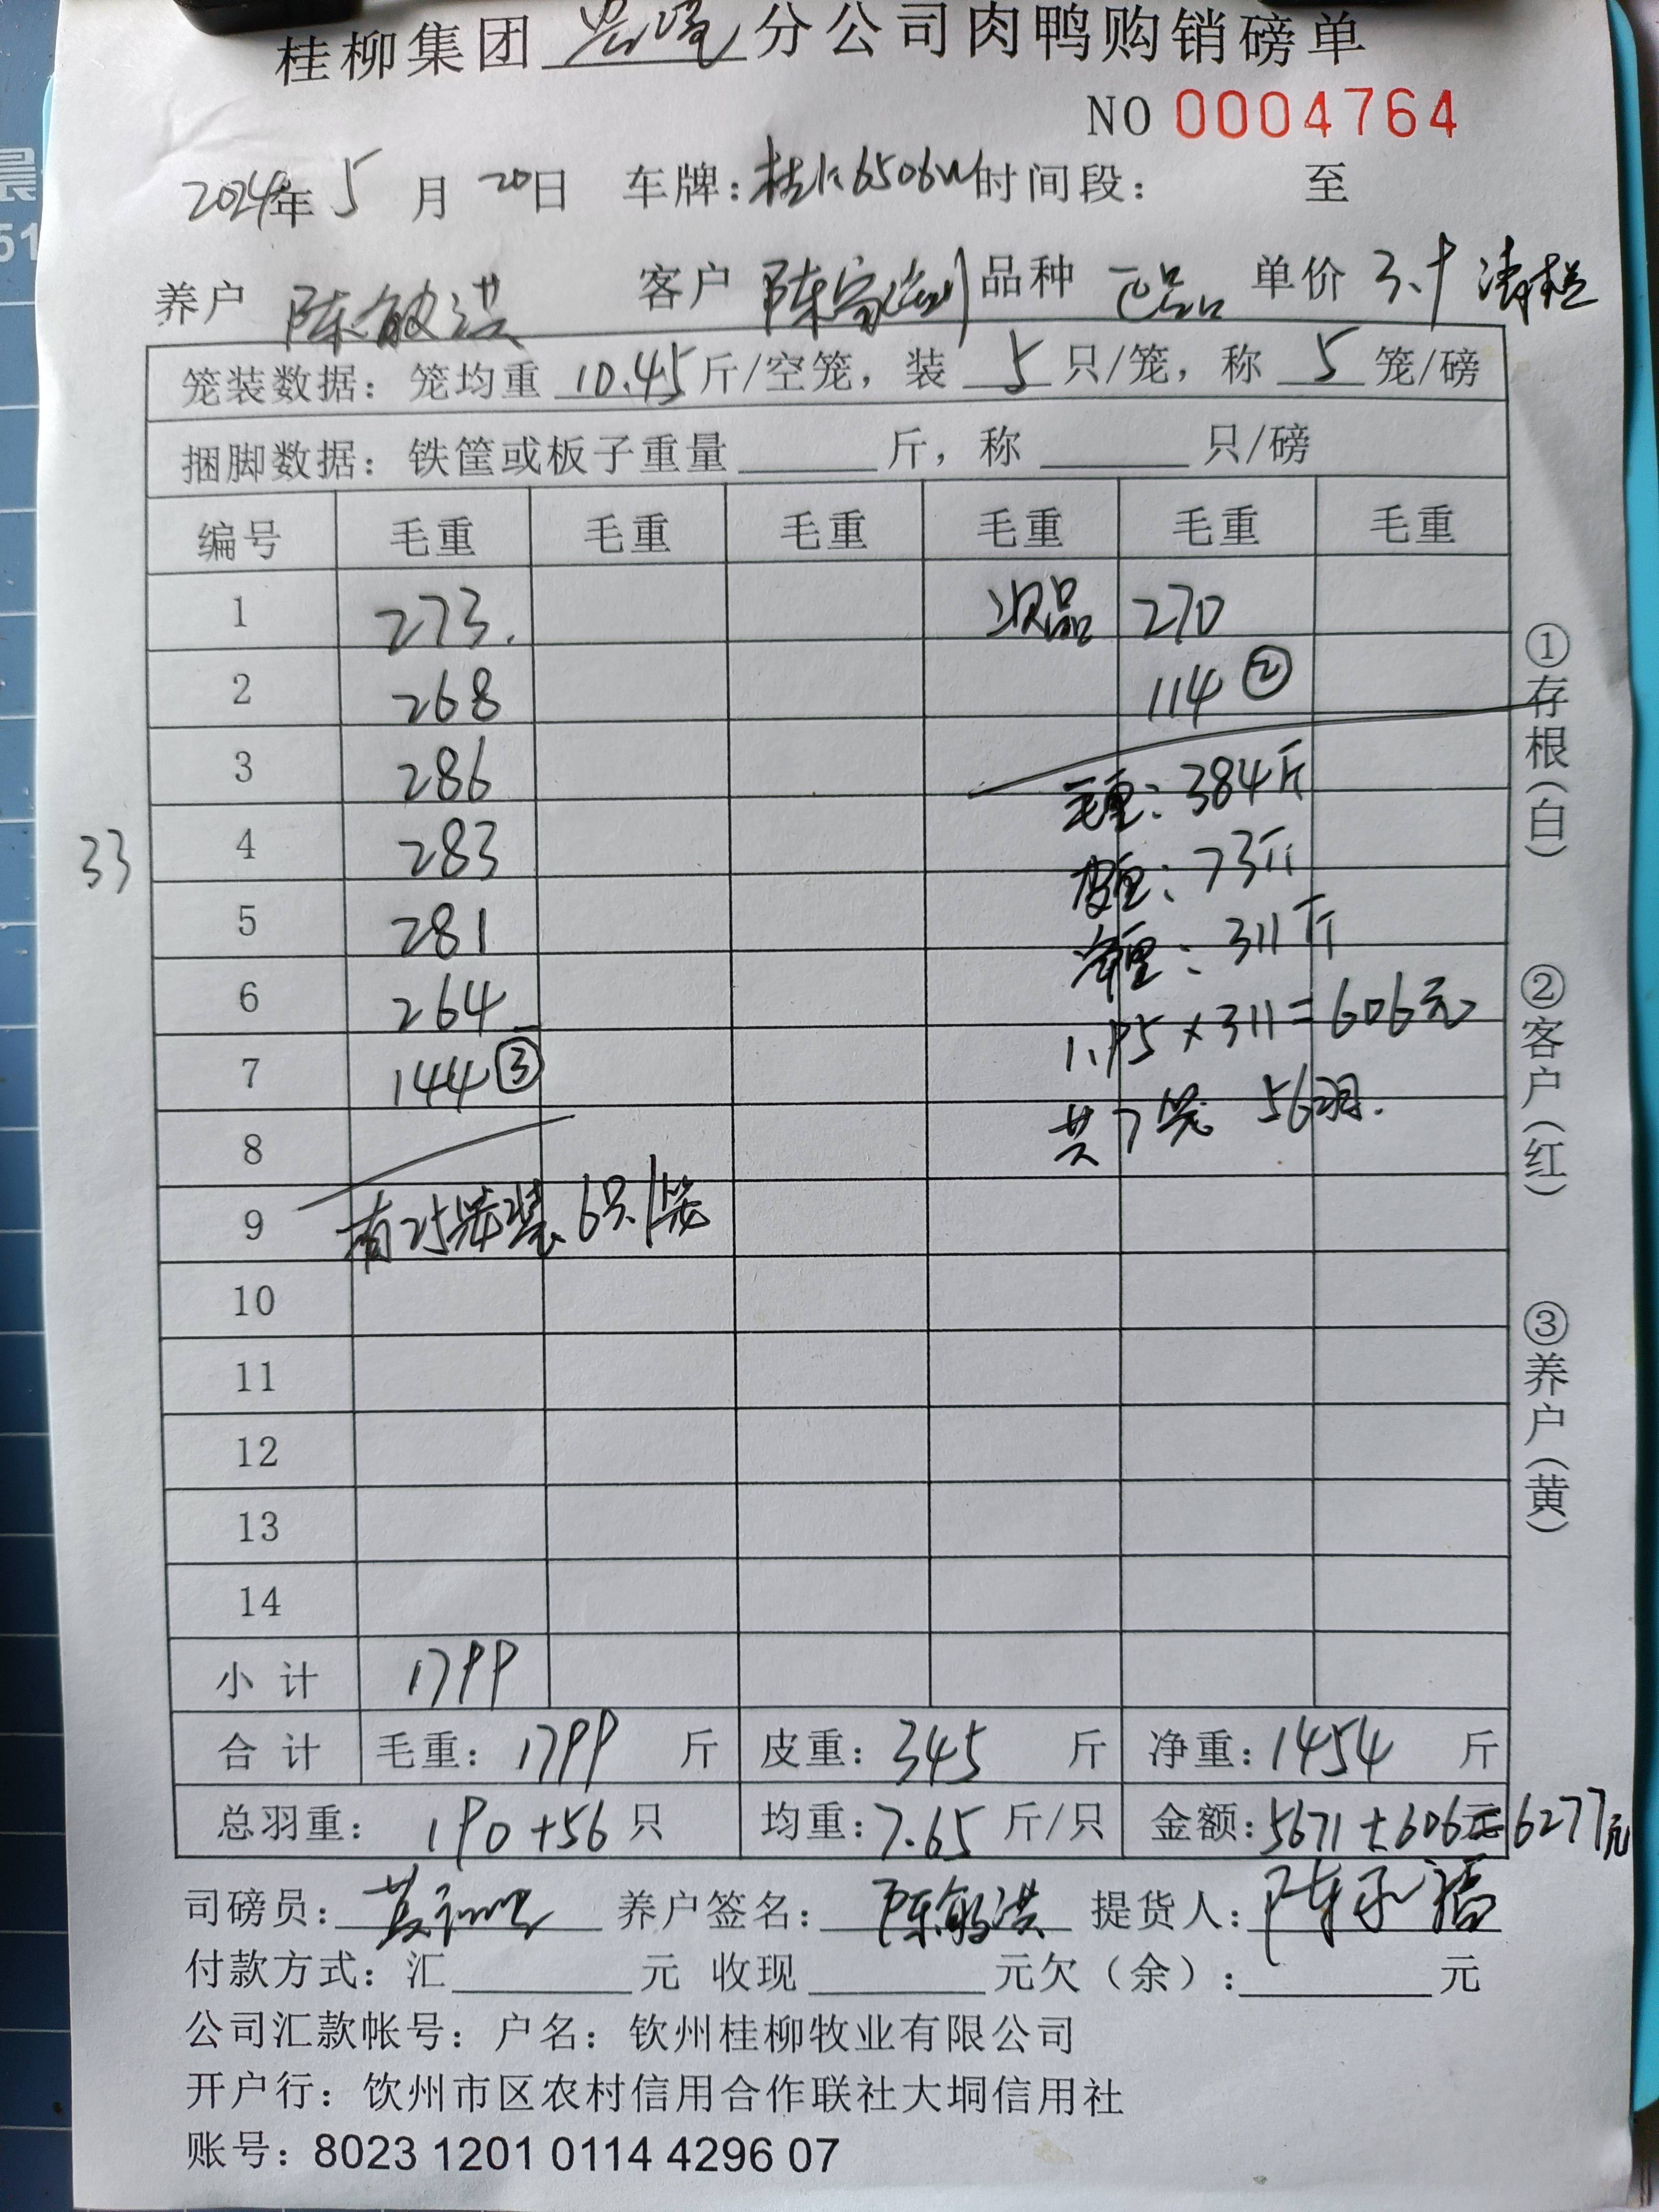 桂柳集团 分公司肉鸭购销磅单
NO 0004764
2024年 5 月 20日 车牌: 6506W 时间段: 至
养户 陈敏洪 客户 陈家 品种 正品 单价 3.9 清栏
笼装数据: 笼均重 10.45 斤/空笼, 装 5 只/笼, 称 5 笼/磅
捆脚数据: 铁筐或板子重量 斤, 称 只/磅
编号 毛重 毛重 毛重 毛重 毛重 毛重
1 273. 次品 270
2 268 114 ②
3 286 毛重: 384斤
4 283 皮重: 73斤
5 281 净重: 311斤
6 264 1.95×311=606元
7 144 ③ 共7笼 56羽.
8
9 有25笼装6只/笼
10
11
12
13
14
33
小计 1799
合计 毛重: 1799 斤 皮重: 345 斤 净重: 1454 斤
总羽重: 190+56 只 均重: 7.65 斤/只 金额: 5671+606元=6277元
司磅员: 养户签名: 陈敏洪 提货人:
付款方式: 汇 元 收现 元欠(余): 元
公司汇款帐号: 户名: 钦州桂柳牧业有限公司
开户行: 钦州市区农村信用合作联社大垌信用社
账号: 8023 1201 0114 4296 07
①存根(白)
②客户(红)
③养户(黄)